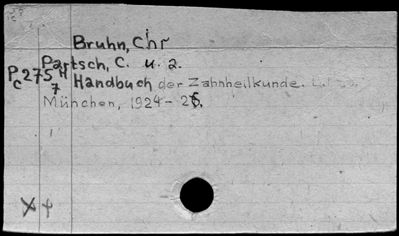 Bruhn, Chr
Partsch, C. u. a.
Pc 275 H 7
Handbuch der Zahnheilkunde.
München, 1924-26.